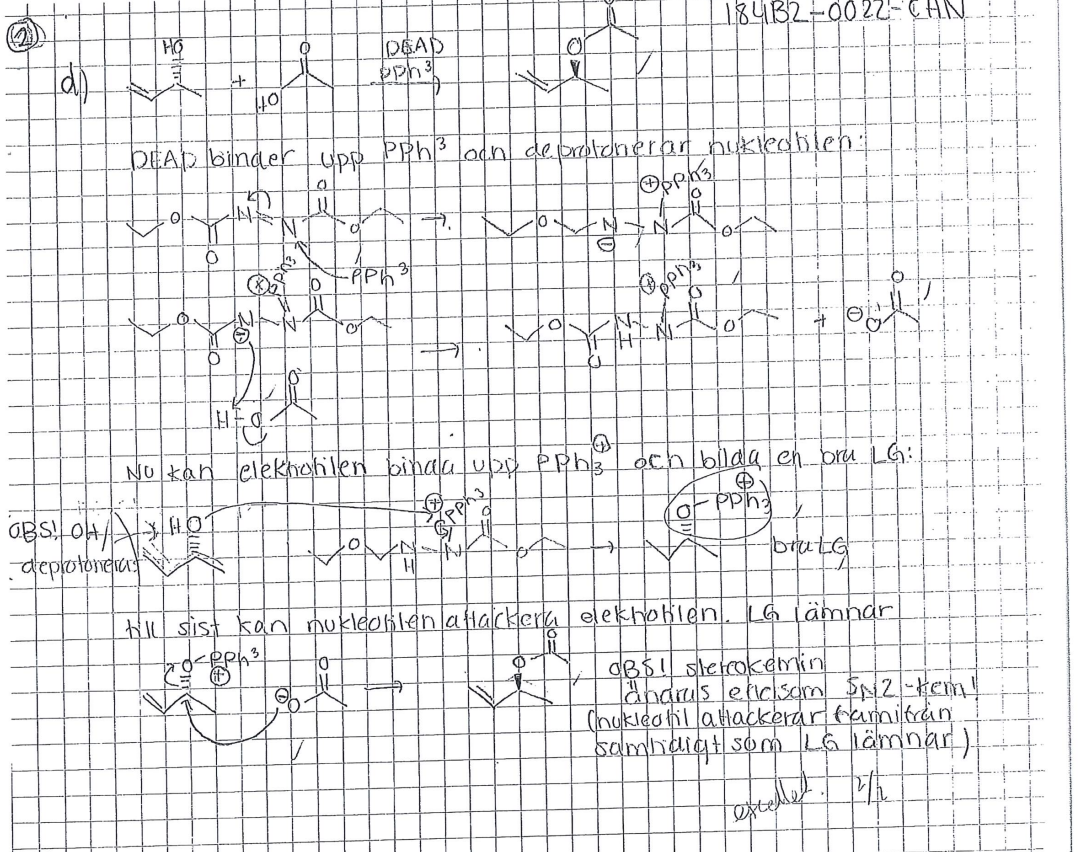 184B2-0022-CHN
②
d)
HO
+
O
HO
DEAD
PPh3
O
O
DEAD binder upp PPh3 och deprotonerar nukleofilen:
O N N O O O PPh3
→
O N ⊖ N ⊕PPh3 O O
O N ⊖ N ⊕PPh3 O O O
H-O O
→
O O N H N ⊕PPh3 O O + ⊖O O
Nu kan elektrofilen binda upp PPh3⊕ och bilda en bra LG:
OBS! OH
deprotoneras
HO
O N H N ⊕PPh3 O O
→
O-PPh3 ⊕
bra LG
till sist kan nukleofilen attackera elektrofilen. LG lämnar
O-PPh3 ⊕
⊖O O
→
O O
OBS! stereokemin
ändras eftersom SN2-kem!
(nukleofil attackerar framifrån
samtidigt som LG lämnar)
excellent. 2/2